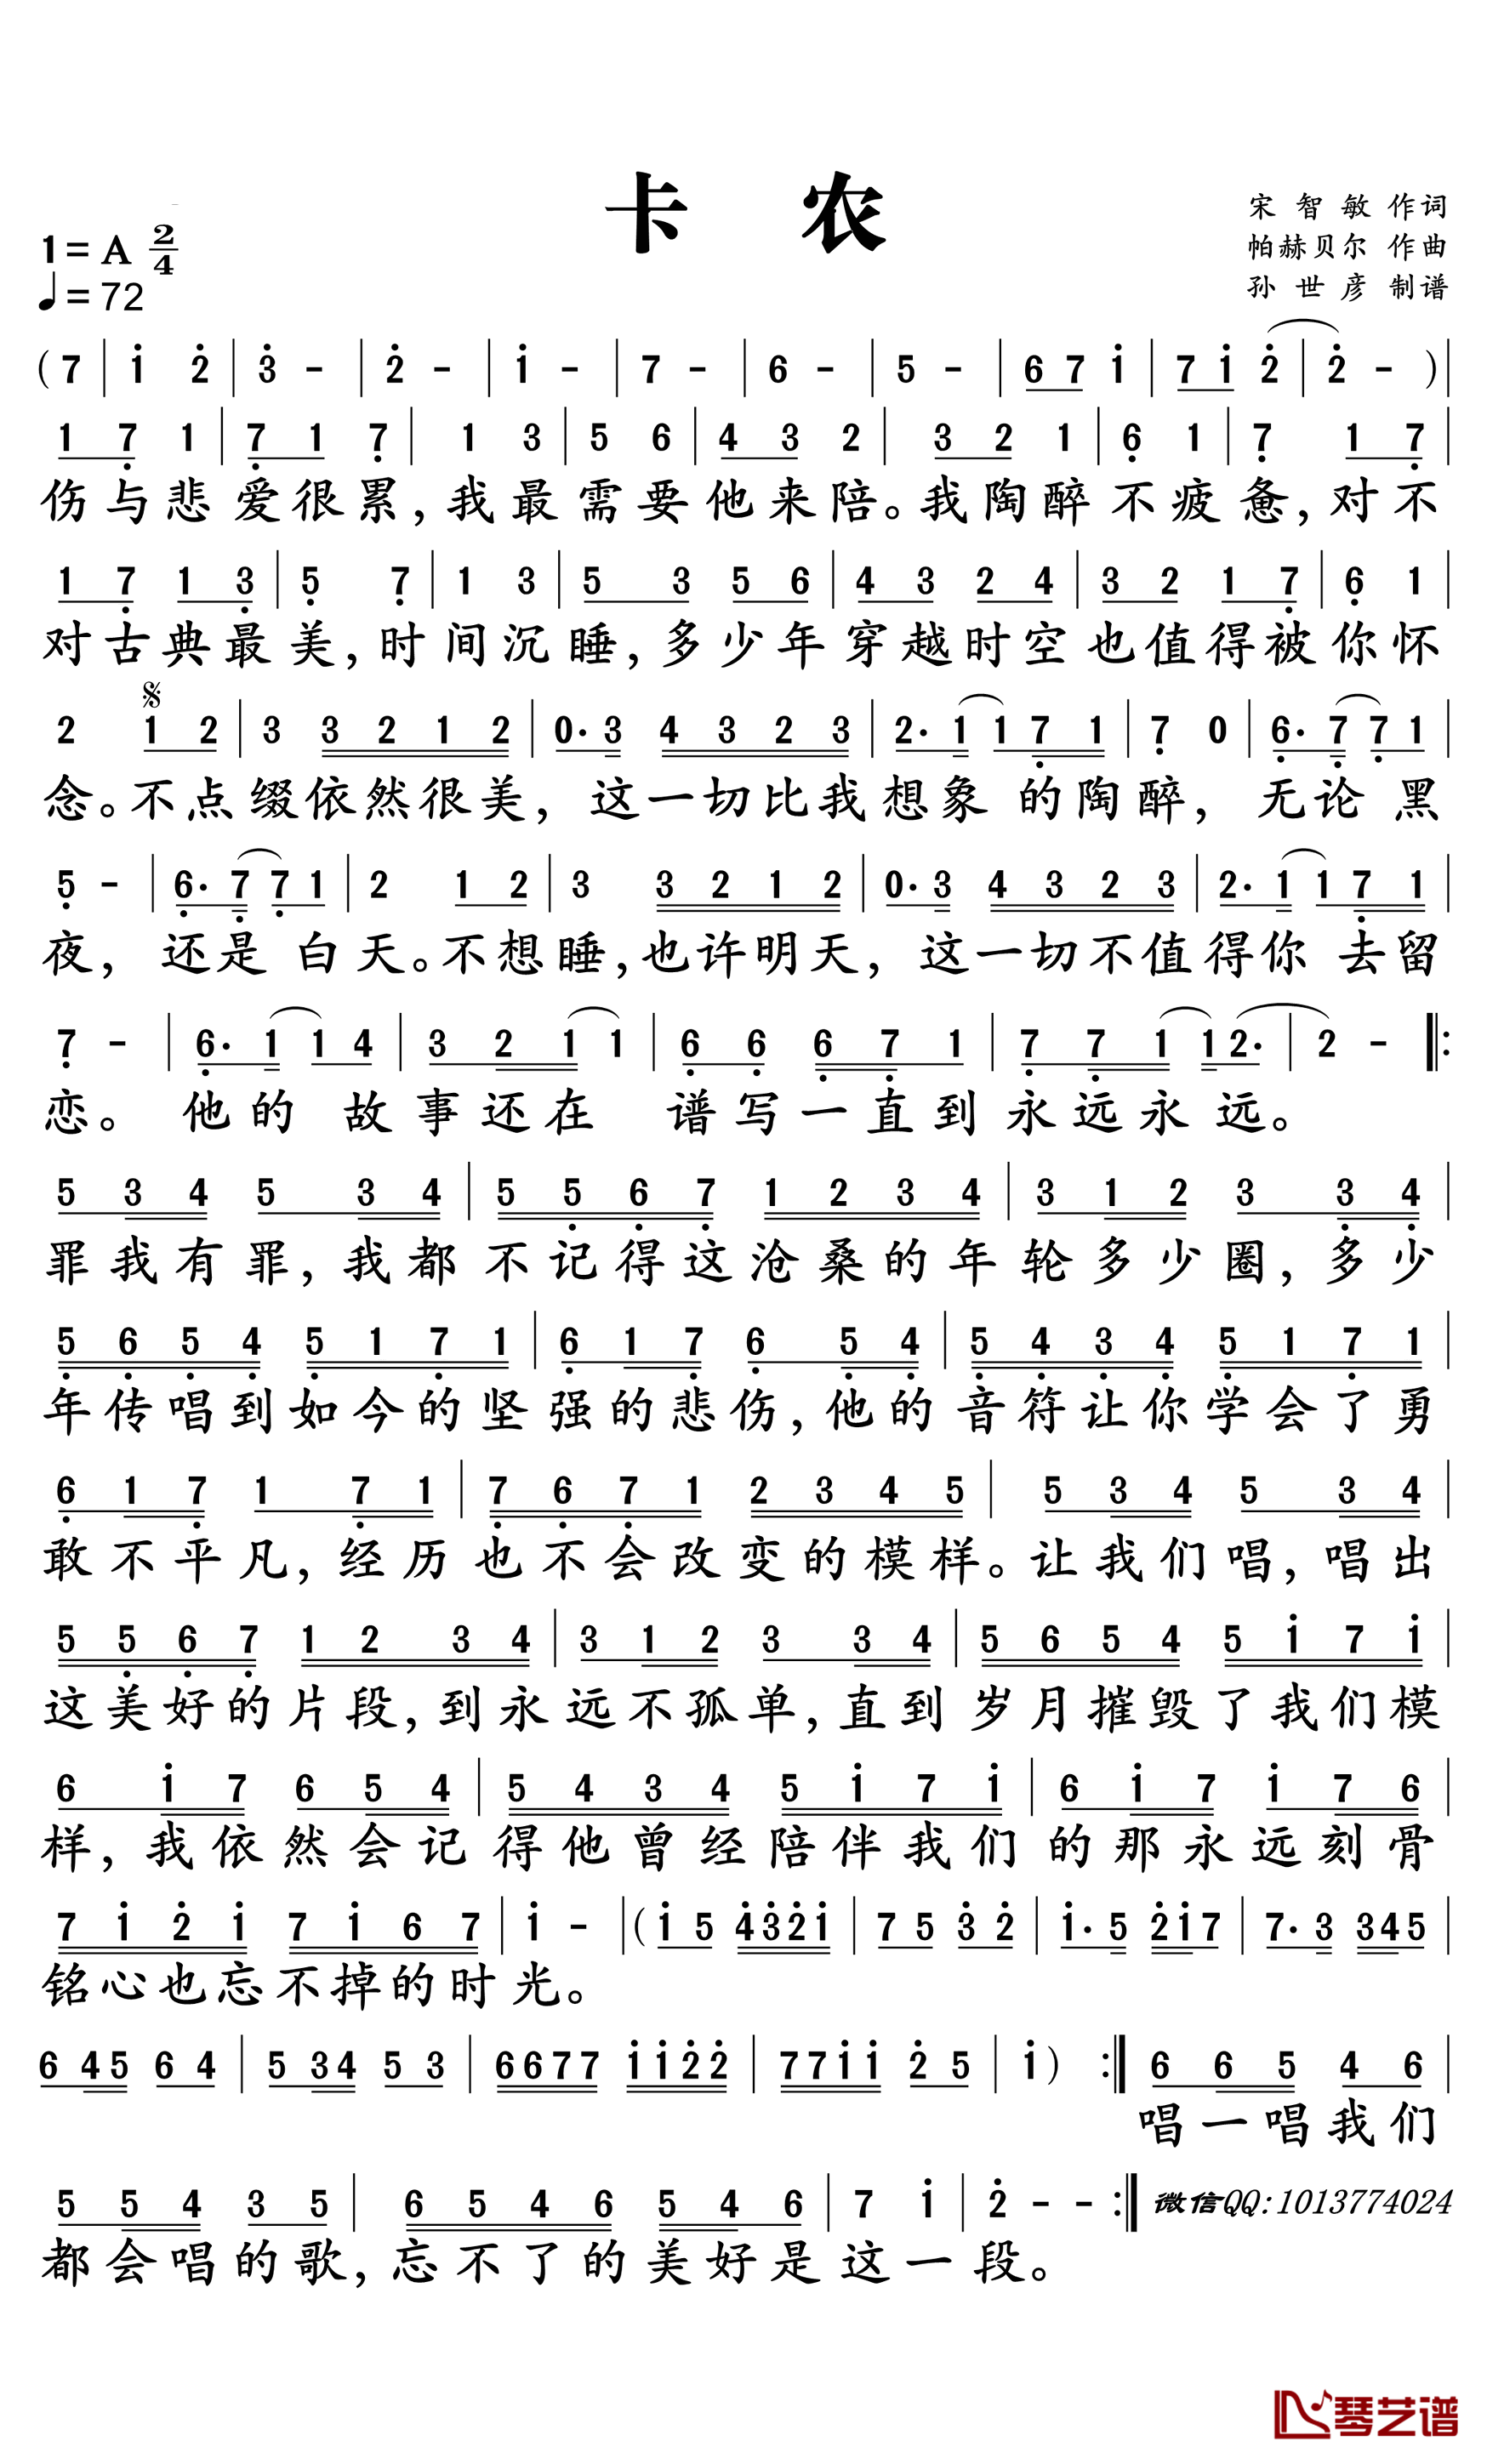 卡 农
宋 智 敏 作词
帕赫贝尔 作曲
孙 世 彦 制谱
1=A 2/4
♩=72
( 7 | 1 2 | 3 - | 2 - | 1 - | 7 - | 6 - | 5 - | 6 7 1 | 7 1 2 | 2 - ) |
1 7 1 | 7 1 7 | 1 3 | 5 6 | 4 3 2 | 3 2 1 | 6 1 | 7 1 7 |
伤与悲爱很累,我最需要他来陪。我陶醉不疲惫,对不
1 7 1 3 | 5 7 | 1 3 | 5 3 5 6 | 4 3 2 4 | 3 2 1 7 | 6 1 |
对古典最美,时间沉睡,多少年穿越时空也值得被你怀
2 1 2 | 3 3 2 1 2 | 0· 3 4 3 2 3 | 2· 1 1 7 1 | 7 0 | 6· 7 7 1 |
念。不点缀依然很美,这一切比我想象的陶醉,无论黑
5 - | 6· 7 7 1 | 2 1 2 | 3 3 2 1 2 | 0· 3 4 3 2 3 | 2· 1 1 7 1 |
夜,还是白天。不想睡,也许明天,这一切不值得你去留
7 - | 6· 1 1 4 | 3 2 1 1 | 6 6 6 7 1 | 7 7 1 1 2· | 2 - |:
恋。他的故事还在 谱写一直到永远永远。
5 3 4 5 3 4 | 5 5 6 7 1 2 3 4 | 3 1 2 3 3 4 |
罪我有罪,我都不记得这沧桑的年轮多少圈,多少
5 6 5 4 5 1 7 1 | 6 1 7 6 5 4 | 5 4 3 4 5 1 7 1 |
年传唱到如今的坚强的悲伤,他的音符让你学会了勇
6 1 7 1 7 1 | 7 6 7 1 2 3 4 5 | 5 3 4 5 3 4 |
敢不平凡,经历也不会改变的模样。让我们唱,唱出
5 5 6 7 1 2 3 4 | 3 1 2 3 3 4 | 5 6 5 4 5 1 7 1 |
这美好的片段,到永远不孤单,直到岁月摧毁了我们模
6 1 7 6 5 4 | 5 4 3 4 5 1 7 1 | 6 1 7 1 7 6 |
样,我依然会记得他曾经陪伴我们的那永远刻骨
7 1 2 1 7 1 6 7 | 1 - | ( 1 5 4 3 2 1 | 7 5 3 2 | 1· 5 2 1 7 | 7· 3 3 4 5 |
铭心也忘不掉的时光。
6 4 5 6 4 | 5 3 4 5 3 | 6 6 7 7 1 1 2 2 | 7 7 1 1 2 5 | 1 ) :| 6 6 5 4 6 |
唱一唱我们
5 5 4 3 5 | 6 5 4 6 5 4 6 | 7 1 | 2 - - :| 微信QQ:1013774024
都会唱的歌,忘不了的美好是这一段。
琴艺谱